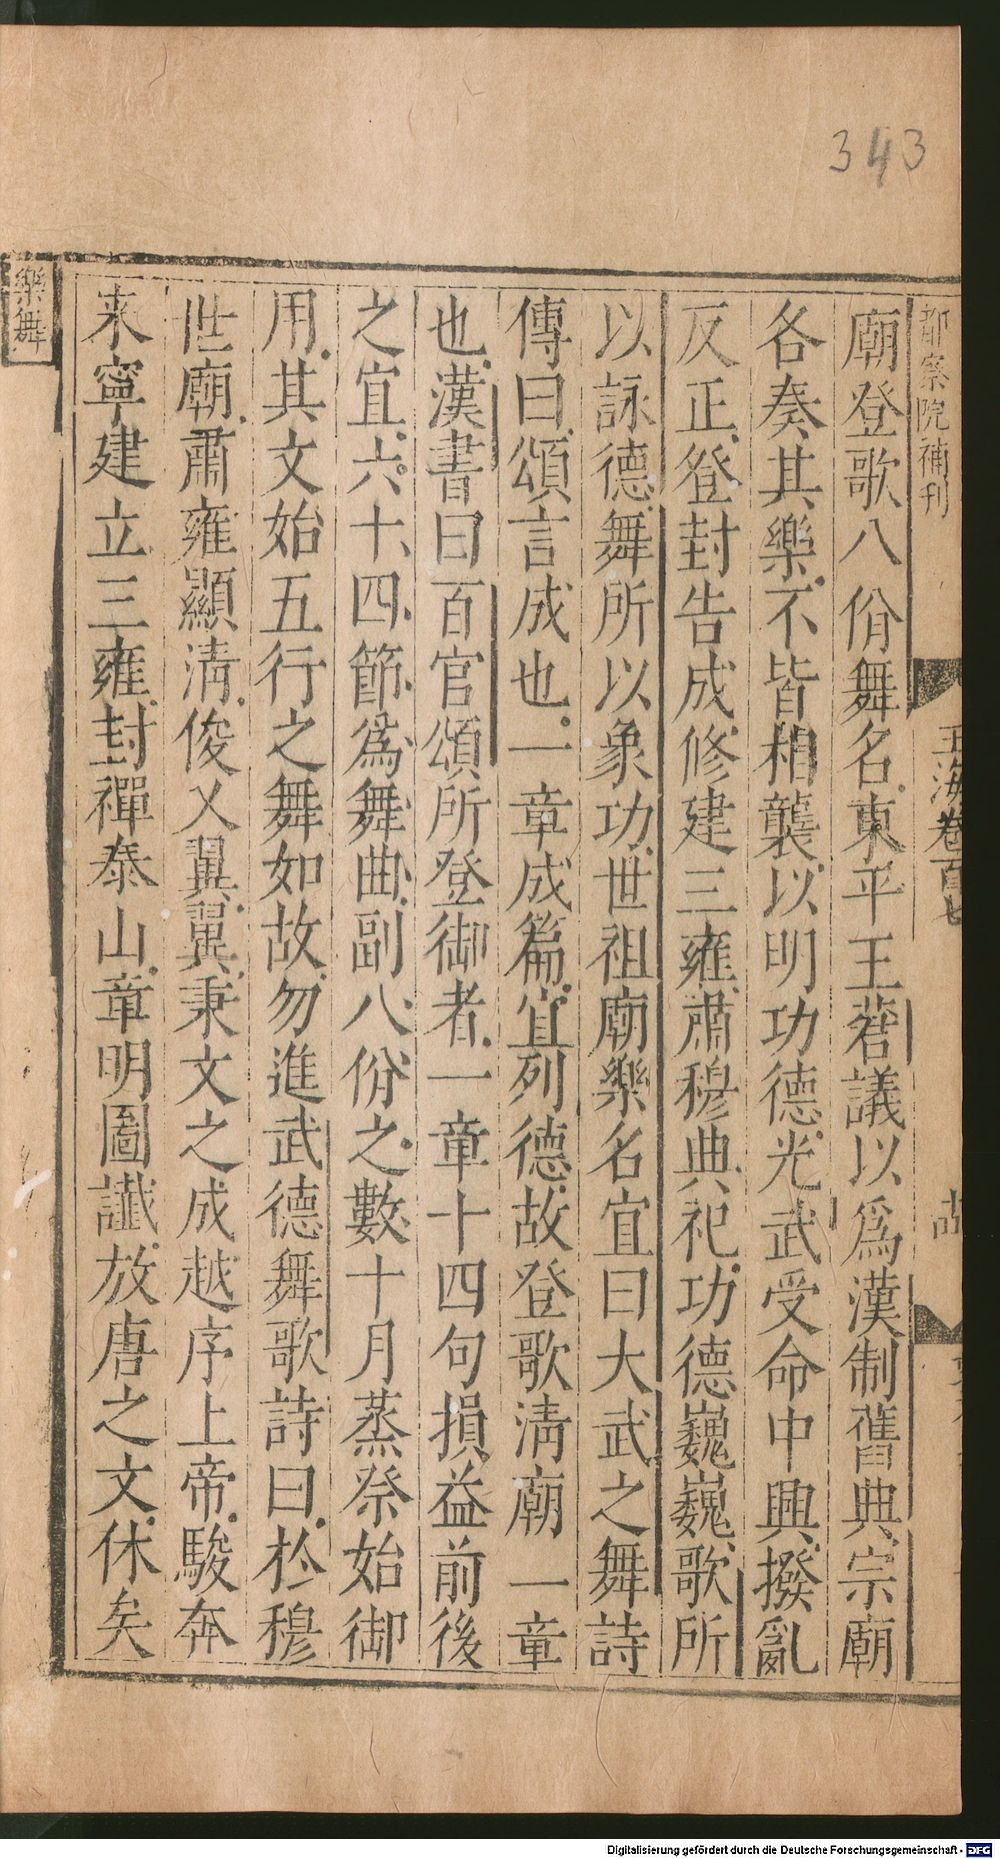 343
都察院補刊
玉海卷百七
廟登歌八佾舞名東平王蒼議以爲漢制舊典宗廟
各奏其樂不皆相襲以明功德光武受命中興撥亂
反正登封告成修建三雍肅穆典祀功德巍巍歌所
以詠德舞所以象功世祖廟樂名宜曰大武之舞詩
傳曰頌言成也一章成篇宜列德故登歌淸廟一章
也漢書曰百官頌所登御者一章十四句損益前後
之宜六十四節爲舞曲副八佾之數十月蒸祭始御
用其文始五行之舞如故勿進武德舞歌詩曰於穆
世廟肅雍顯淸俊乂翼翼秉文之成越序上帝駿奔
來寧建立三雍封禪泰山章明圖讖放唐之文休矣
樂舞
Digitalisierung gefördert durch die Deutsche Forschungsgemeinschaft - DFG